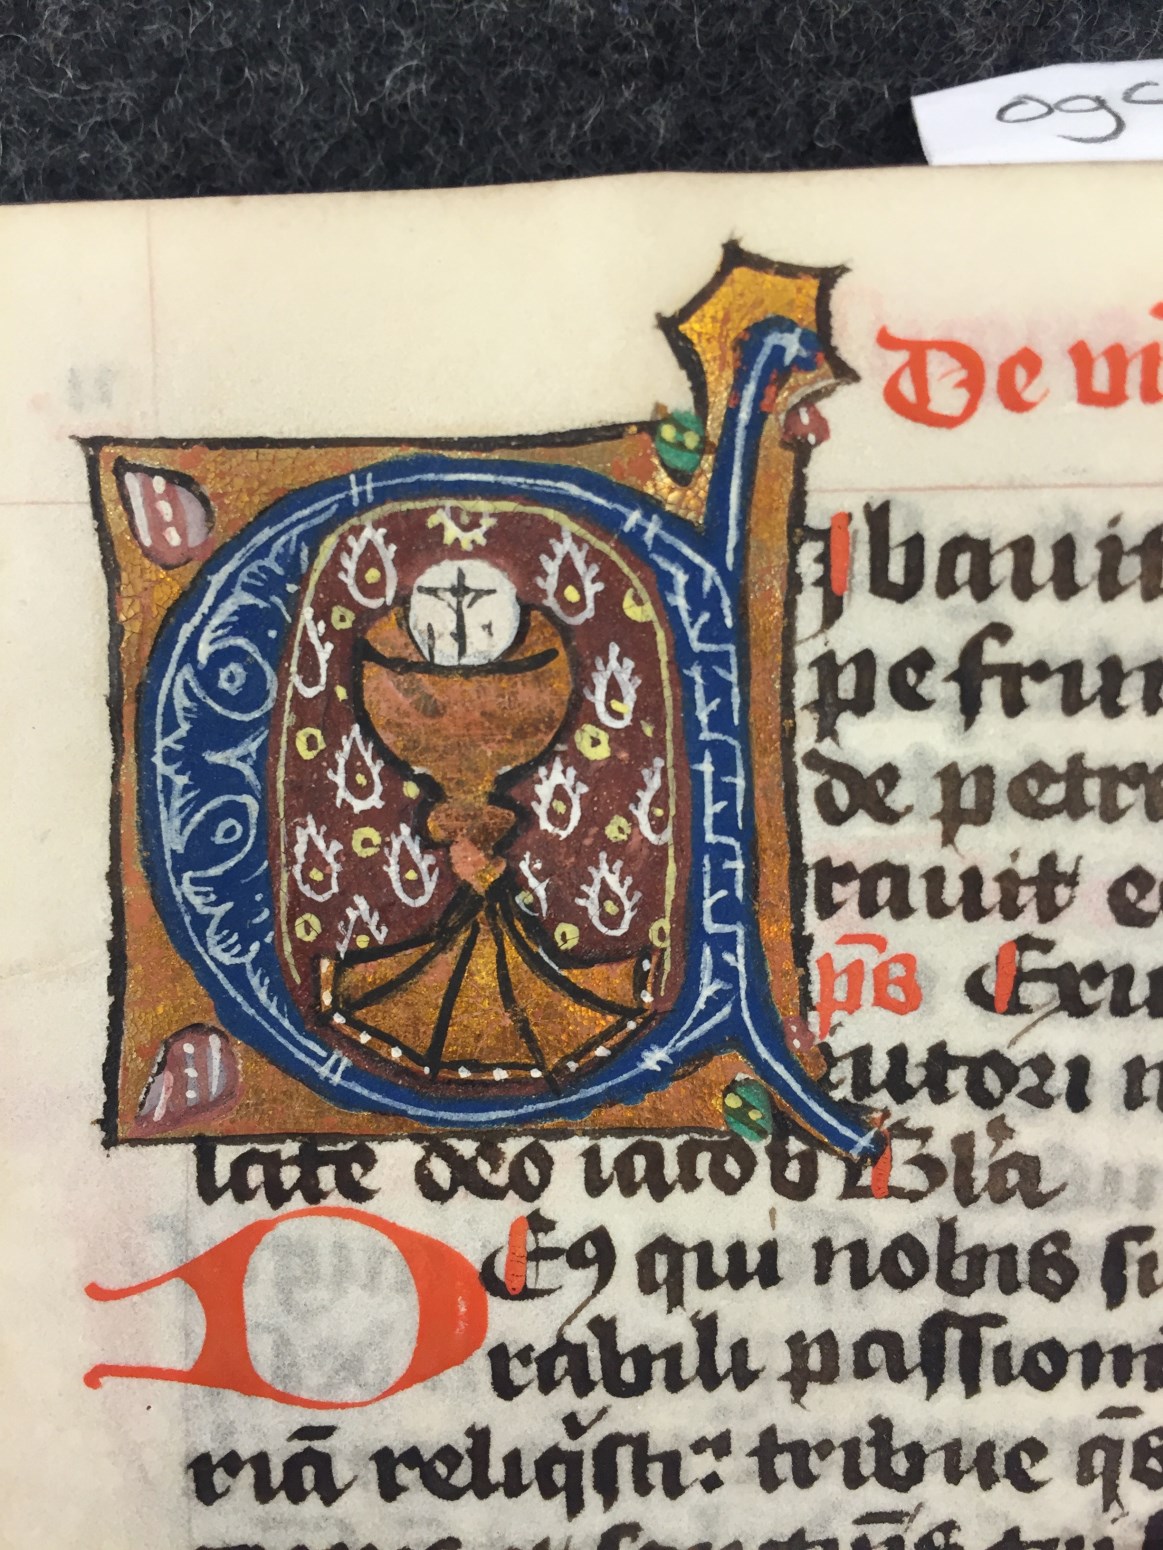 ogc
De vi
C Ibauit
pe frum
de petra
rauit e
p̄s Exu
iutori n
late deo iacob Gl̄a
DEꝰ qui nobis
rabili passion
riā reliq̇sti: tribue q̄s